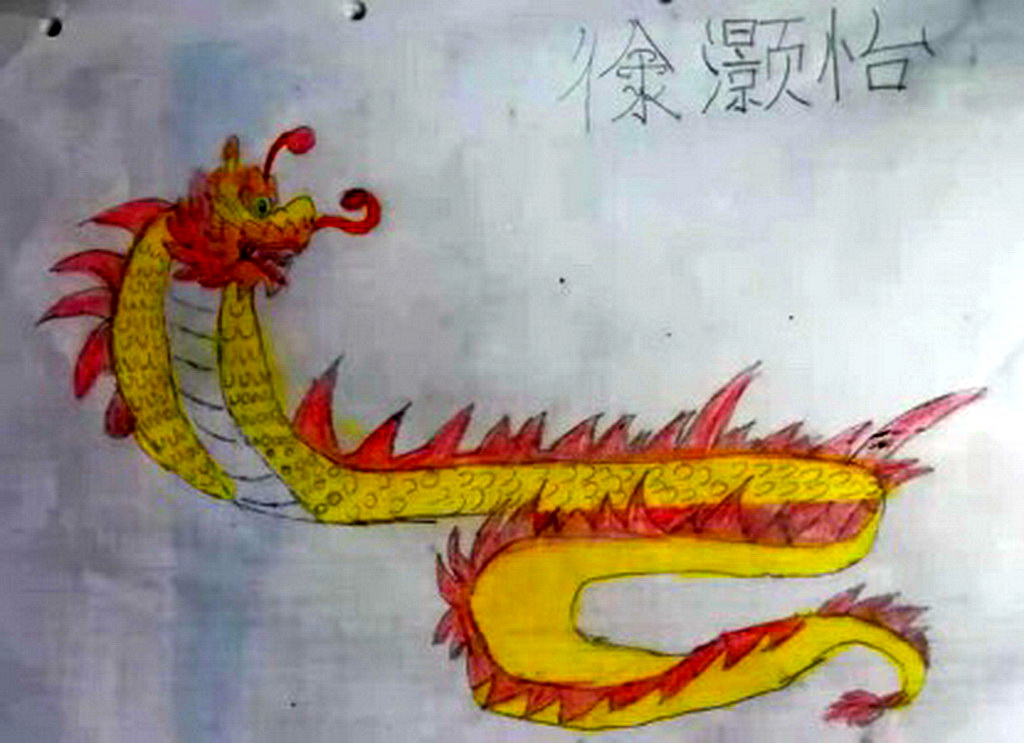 徐灏怡